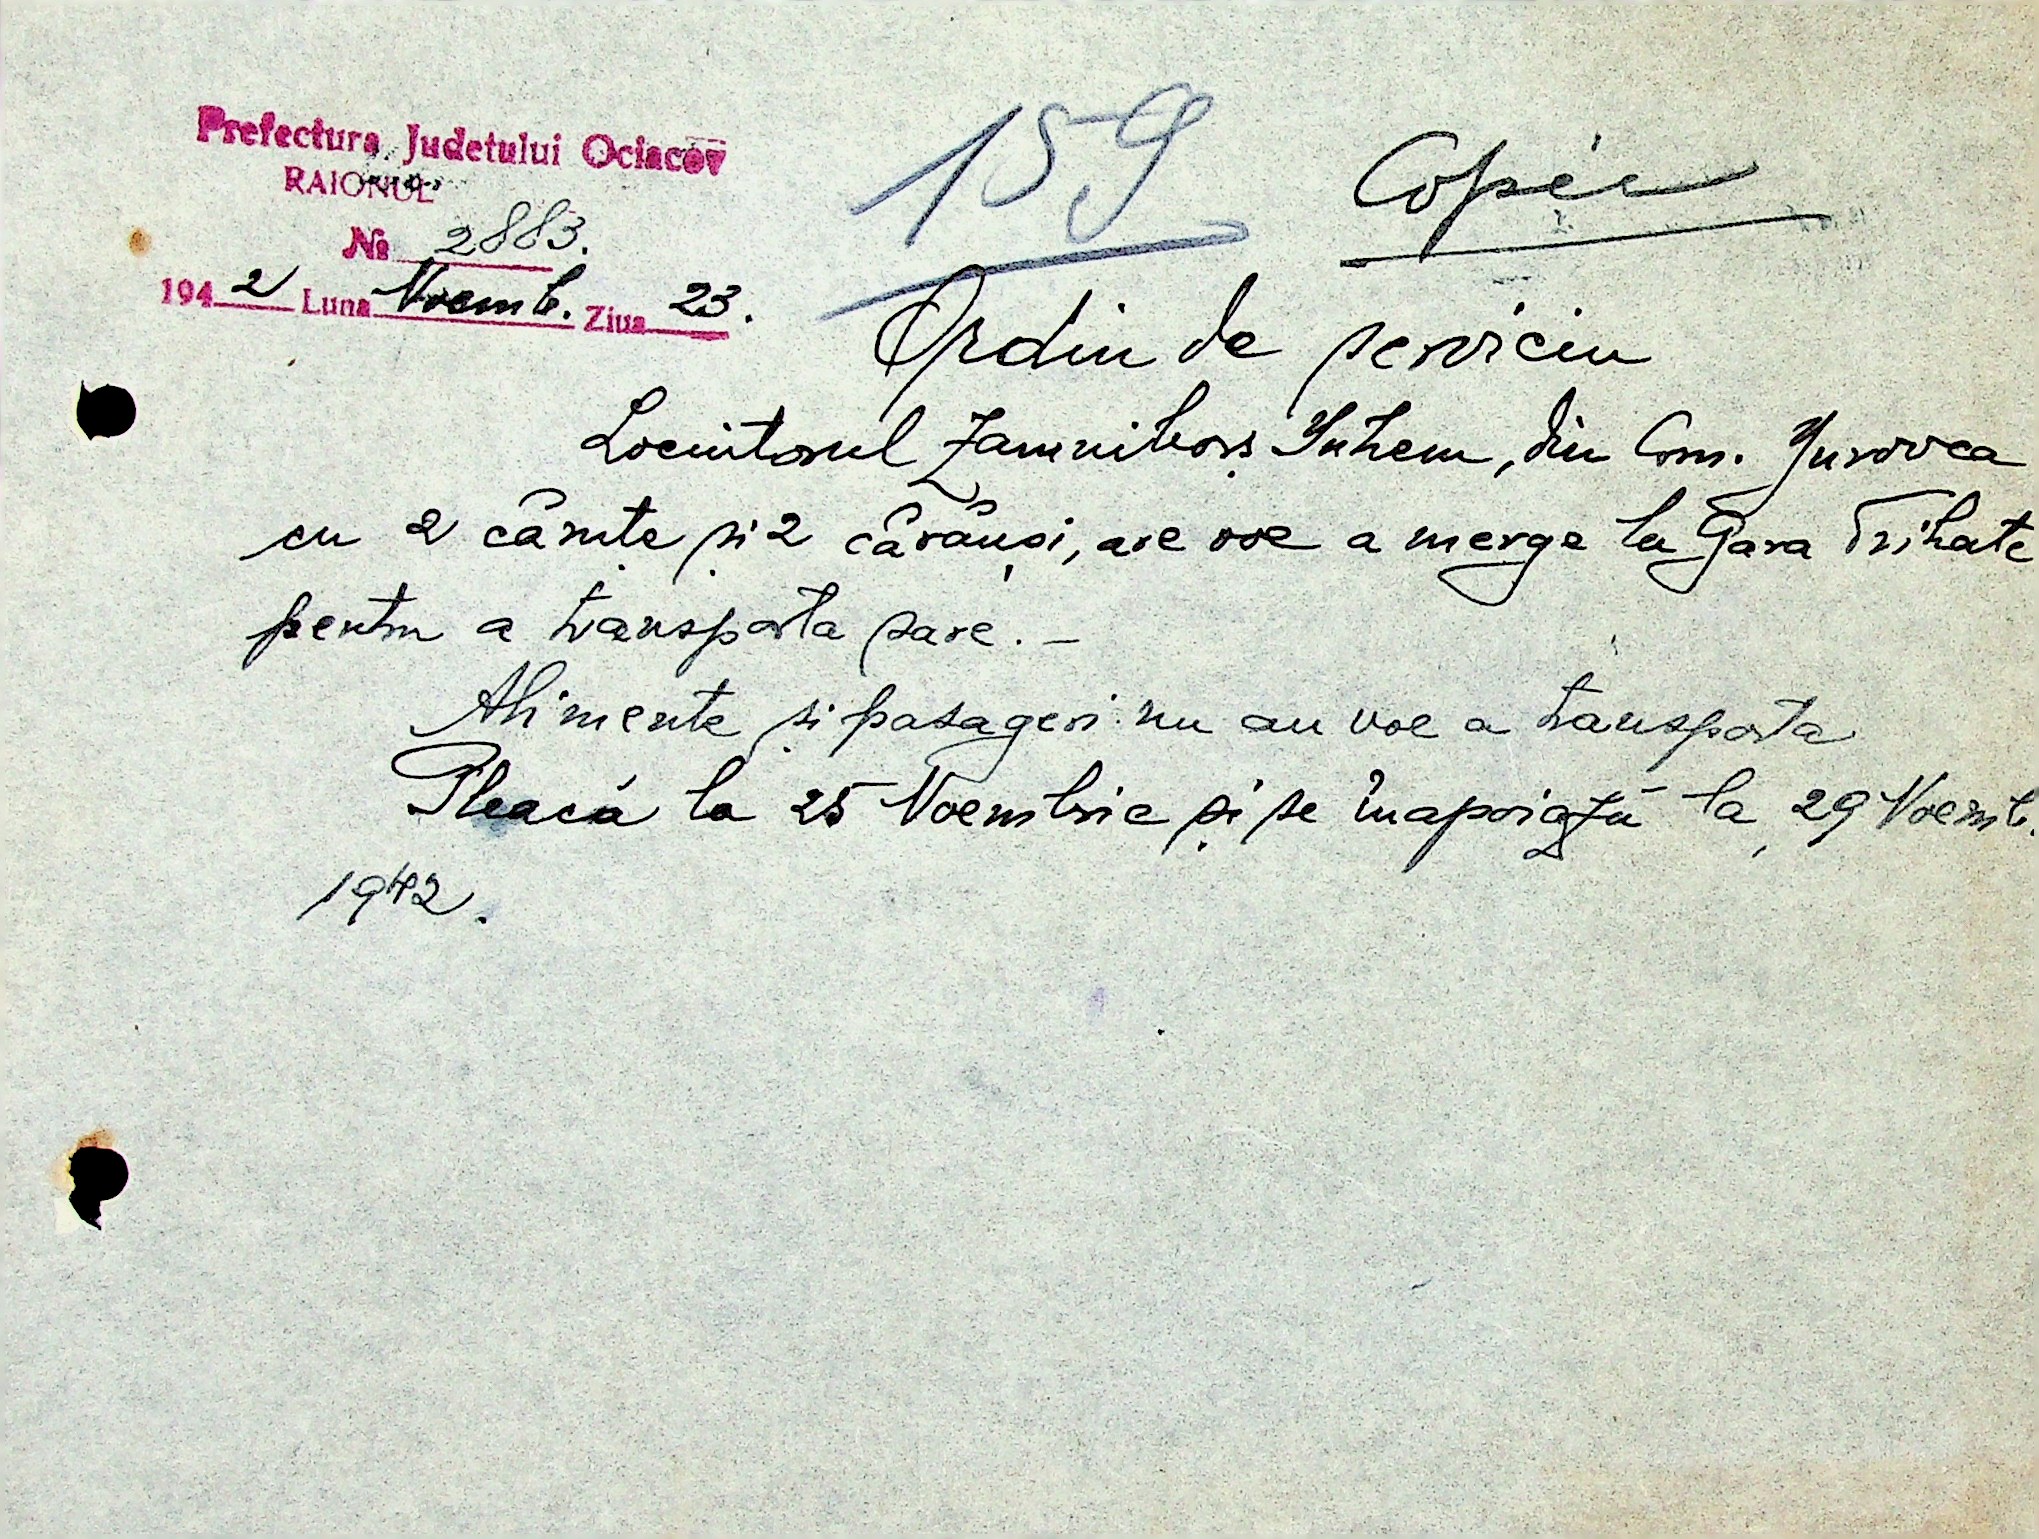 Prefectura Judetului Ociacov
RAIONUL
№ 2883.
1942 Luna Noemb. Ziua 23.
159
Copie
Ordin de serviciu
Locuitorul Zamniborș Iuhem, din Com. Gurovca
cu 2 căruțe și 2 cărăuși, are voe a merge la Gara Trihate
pentru a transporta sare. -
Alimente și pasageri nu au voe a transporta
Pleacă la 25 Noembrie și se înapoiază la 29 Noemb.
1942.